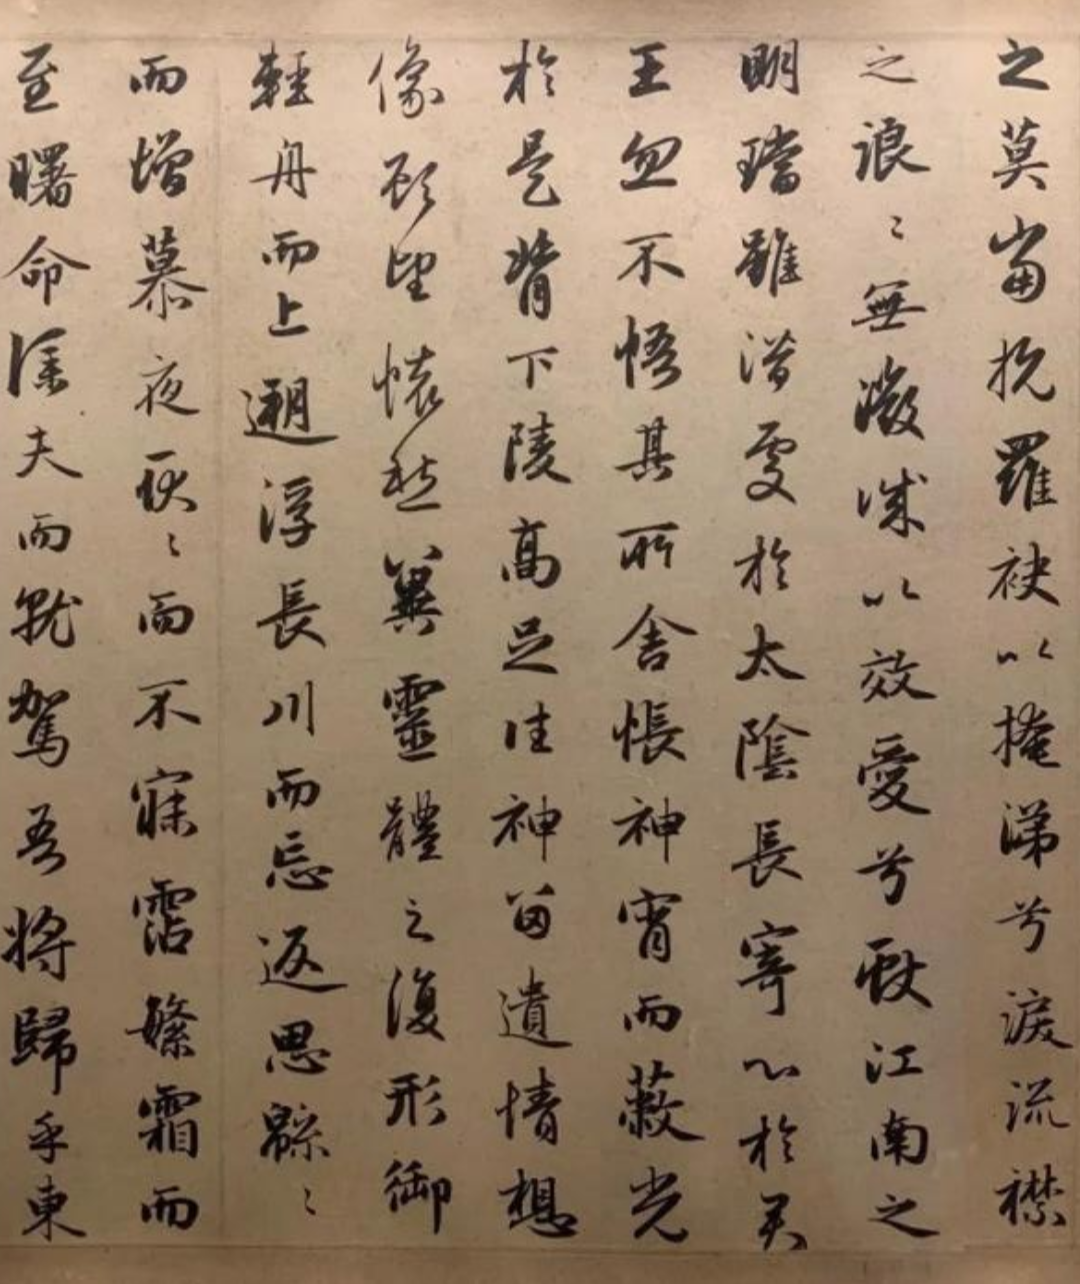 之莫當抗羅袂以掩涕兮淚流襟
之浪〻無微誠以效愛兮獻江南之
明璫雖潛處於太陰長寄心於君
王忽不悟其所舍悵神宵而蔽光
於是背下陵高足往神留遺情想
像顧望懷愁冀靈體之復形御
輕舟而上遡浮長川而忘返思緜〻
而增慕夜耿〻而不寐霑繁霜而
至曙命僕夫而就駕吾將歸乎東